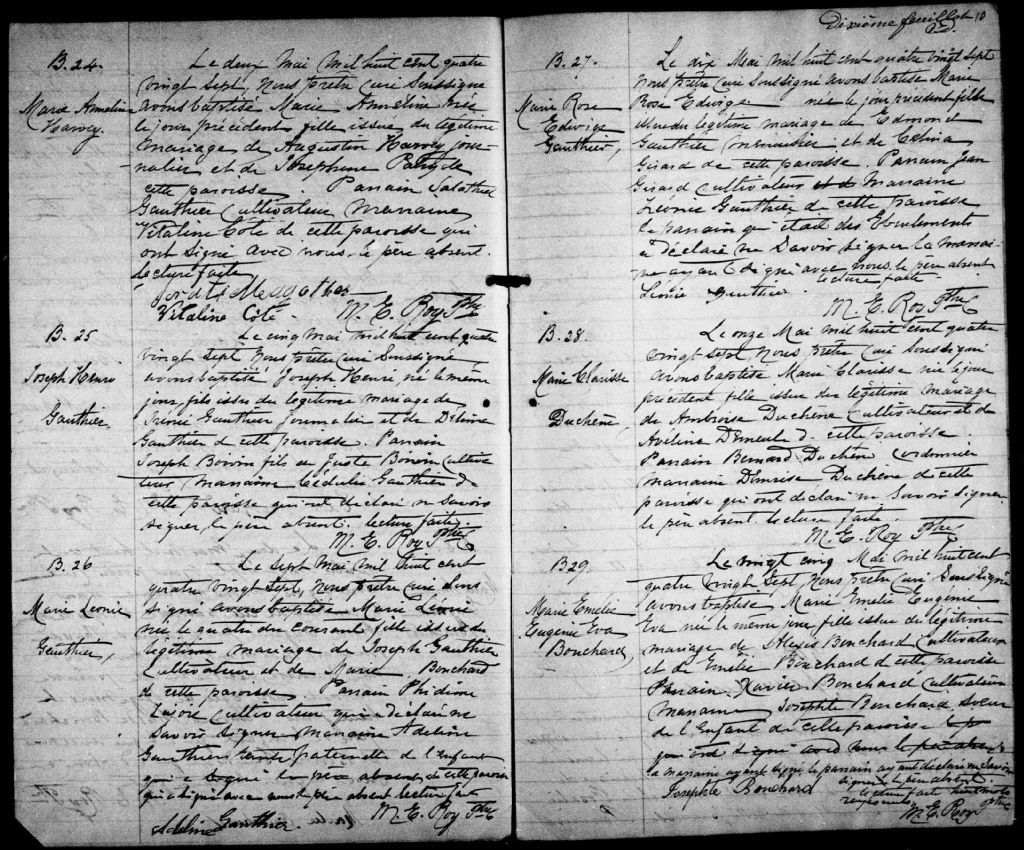 B. 24.
Marie Anneline
Harvey.
Le deux Mai mil huit cent quatre
vingt sept, Nous prêtre curé soussigné
avons baptisé Marie Anneline née
le jour précédent fille issue du légitime
mariage de Augustin Harvey jour-
nalier et de Josephine de
cette paroisse. Parrain Salathiel
Gauthier Cultivateur Marraine
Vitaline Côté de cette paroisse qui
ont signé avec nous. le père absent.
Lecture faite
Vitaline Côté. M. E. Roy Ptre
B. 25
Joseph Henri
Gauthier,
Le cinq Mai mil huit cent quatre
vingt sept Nous prêtre curé soussigné
avons baptisé Joseph Henri, né le même
jour, fils issu du légitime mariage de
Gauthier Journalier et de
Gauthier d cette paroisse. Parrain
Joseph Boivin fils de Juste Boivin cultiva
teur, Marraine Cédulie Gauthier de
cette paroisse qui ont déclaré ne savoir
signer, le père absent. lecture faite.
M. E. Roy Ptre
B. 26
Marie Léonie
Gauthier,
Le sept Mai mil huit cent
quatre vingt sept, Nous prêtre curé sous
signé avons baptisé Marie Léonie
née le quatre du courant fille issue du
légitime mariage de Joseph Gauthier
Cultivateur et de Marie Bouchard
de cette paroisse. Parrain Phidime
Lajoie cultivateur qui a déclaré ne
savoir signer, Marraine Adeline
Gauthier tante paternelle de l'enfant
qui a signé le père absent de cette paroisse
qui a signé avec nous le père absent lecture fait
Adeline Gauthier. M. E. Roy Ptre
Dixième feuillet 10
B. 27.
Marie Rose
Edwige
Gauthier,
Le dix Mai mil huit cent quatre vingt sept
Nous prêtre curé soussigné avons baptisé Marie
Rose Edwige née le jour précédent fille
issue du légitime mariage de Edmond
Gauthier menuisier et de Célina
Girard de cette paroisse. Parrain Jean
Girard cultivateur et d Marraine
Léonie Gauthier, de cette paroisse
le parrain qui était des Eboulements
a déclaré ne savoir signer la marrai-
ne ayant signé avec nous. le père absent
lecture faite
Léonie Gauthier.
M. E. Roy Ptre
B. 28.
Marie Clarisse
Duchêne,
Le onze Mai mil huit cent quatre
vingt sept Nous prêtre curé soussigné
avons baptisé Marie Clarisse née le jour
précédent fille issue du légitime mariage
de Ambroise Duchêne cultivateur et de
Aveline Demeule d cette paroisse.
Parrain Bernard Duchêne cordonnier
marraine Démerise Duchêne de cette
paroisse qui ont déclaré ne savoir signer.
le père absent. lecture faite.
M. E. Roy Ptre
B 29.
Marie Emelie
Eugénie Eva
Bouchard,
Le vingt cinq Mai mil huit cent
quatre vingt sept Nous prêtre curé soussigné
avons baptisé Marie Emelie Eugénie
Eva née le même jour, fille issue du légitime
mariage de Alexis Bouchard cultivateur
et de Emelie Bouchard d cette paroisse
Parrain Xavier Bouchard cultivateur
marraine Josephte Bouchard soeur
de l'enfant de cette paroisse le p
qui ont signé avec nous le père absent
la marraine ayant signé le parrain ayant déclaré ne savoir
signer le père absent.
lecture faite
Josephte Bouchard
M. E. Roy Ptre